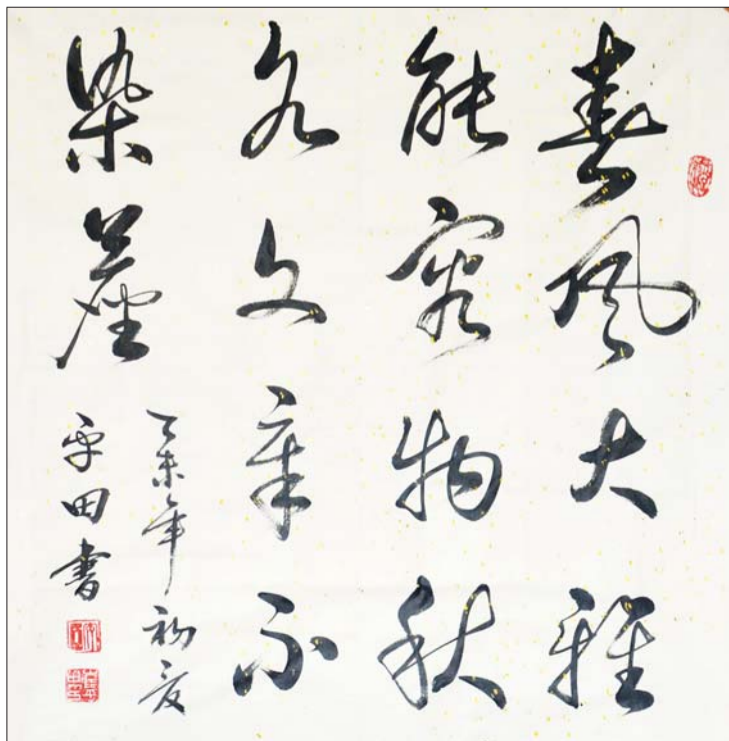 春風大雅
能容物秋
水文章不
染塵
乙未年初夏
平田書